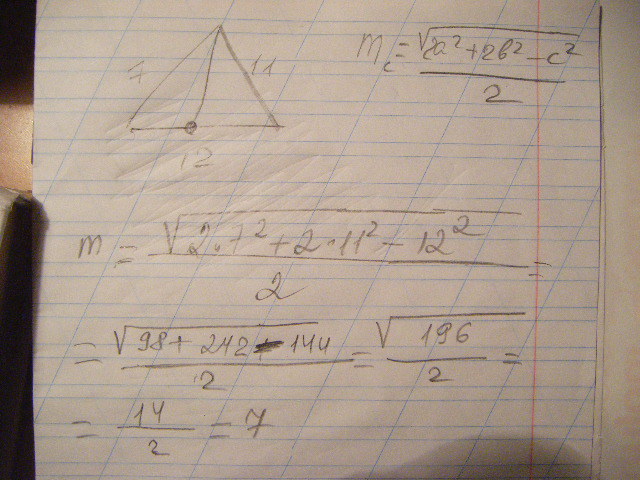 7
11
12
m_c = √(2a² + 2b² - c²) / 2
m = √(2·7² + 2·11² - 12²) / 2 =
= √(98 + 242 - 144) / 2 = √196 / 2 =
= 14 / 2 = 7